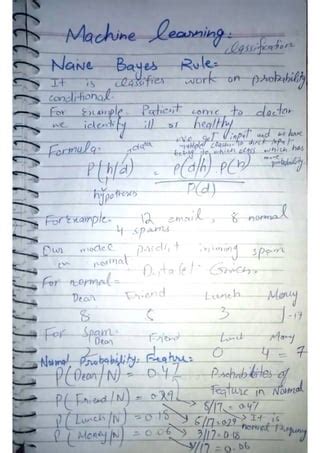 Machine learning:
classification
Naive Bayes Rule:
It is classifies work on probability
conditional.
For Example. Patient come to doctor
we identify ill or healthy
Formula: data
we get input and we have
which has
more probability
P(h/d) = P(d/h) P(h)
P(d)
hypotheses
For example. 12 email, 8 normal
4 spams
Our model predict incoming spam
or normal Data Set Given.
For normal=
Dear Friend Lunch Money
8 5 3 1 = 17
For Spam.
Dear Friend Lunch Money
0 4 = 7
Normal Probability: Feature:
P(Dear/N) = 0.47 Probabilites of
Feature in Normal
P(Friend/N) = 0.29 8/17 = 0.47
P(Lunch/N) = 0.18 5/17 = 0.29 It is
normal Frequency
P(Money/N) = 0.06 3/17 = 0.18
1/17 = 0.06